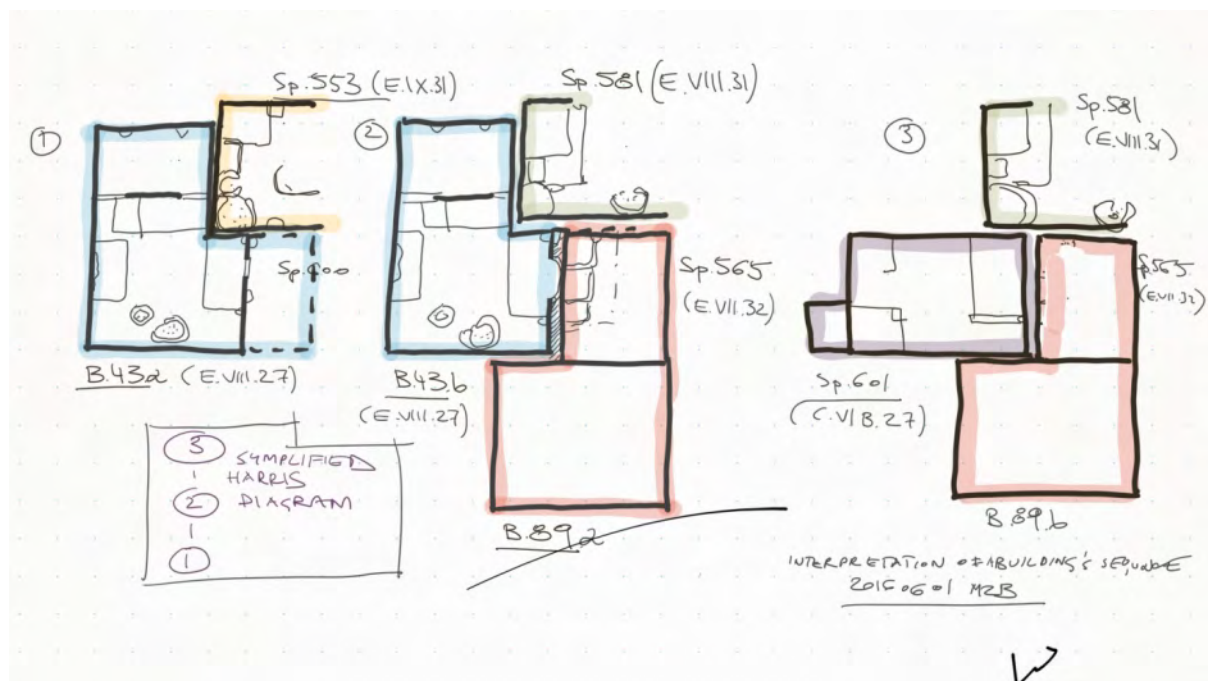 ①
Sp.553 (E.IX.31)
Sp.600
B.43a (E.VIII.27)
②
Sp.581 (E.VIII.31)
Sp.565
(E.VII.32)
B.43.b
(E.VIII.27)
B.89a
③
Sp.581
(E.VIII.31)
Sp.565
(E.VII.32)
Sp.601
(C.VIB.27)
B.89.b
3
SYMPLIFIED
HARRIS
2 DIAGRAM
1
INTERPRETATION OF BUILDING'S SEQUENCE
20150601 MZB